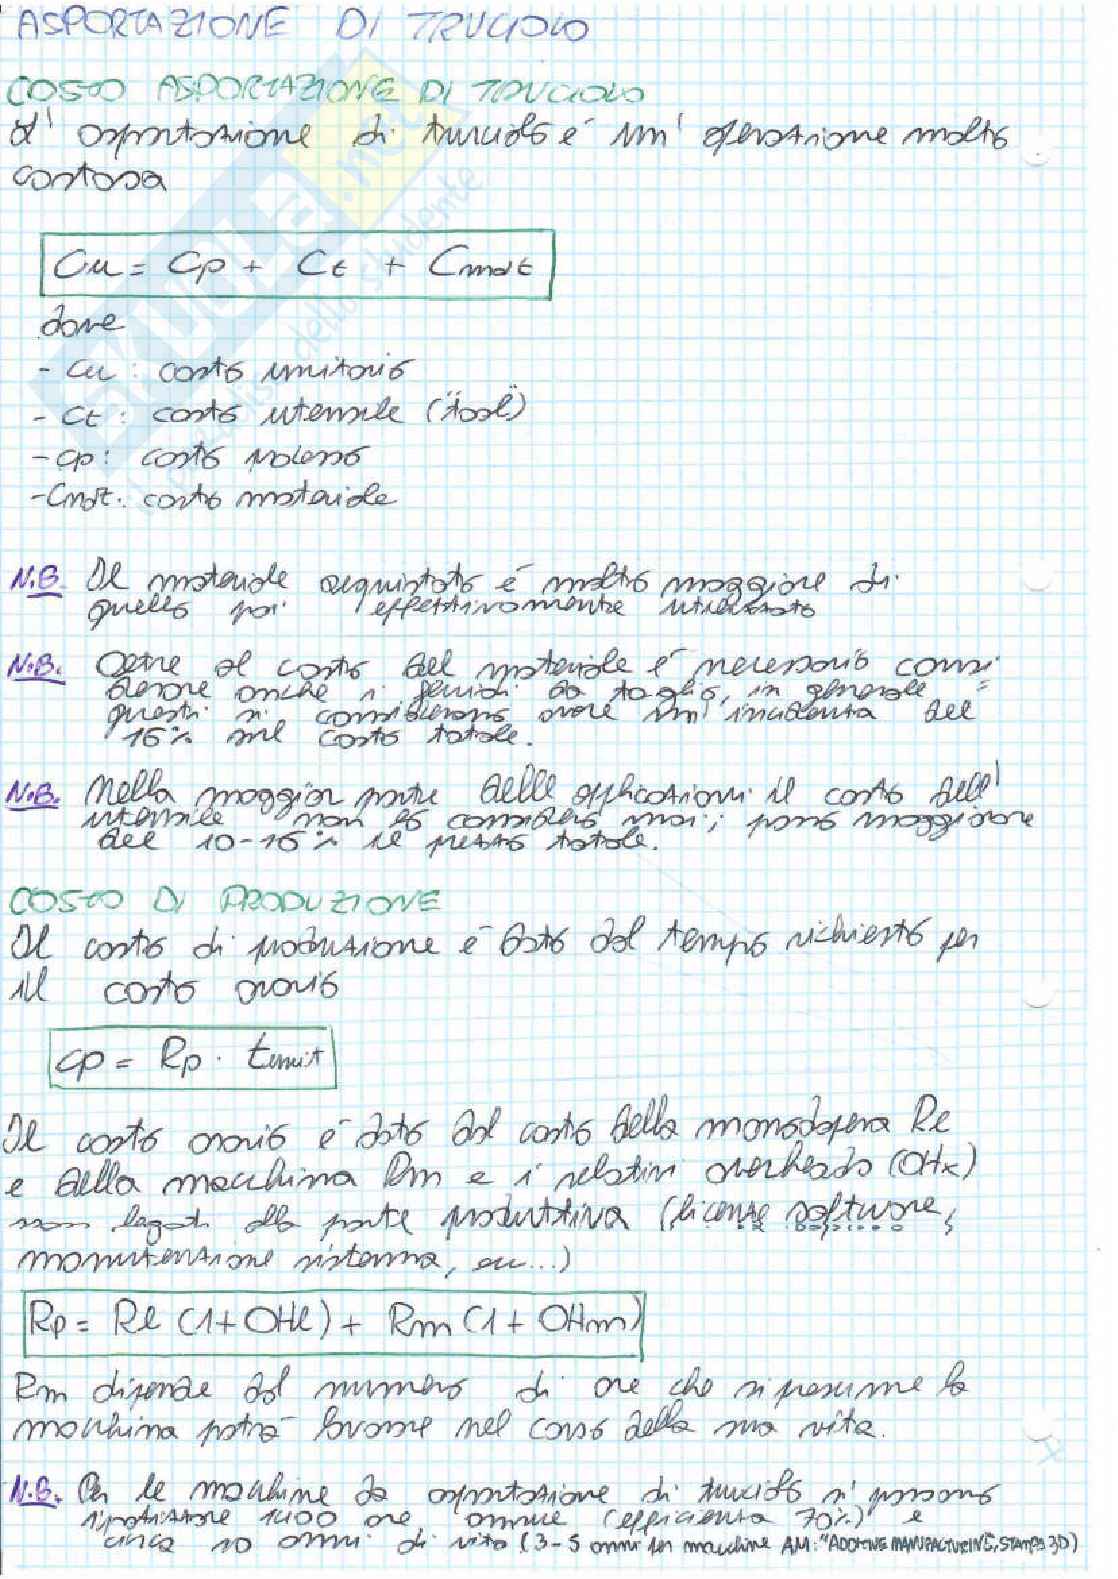 ASPORTAZIONE DI TRUCIOLO
COSTO ASPORTAZIONE DI TRUCIOLO
L' asportazione di truciolo è un' operazione molto
costosa
Cu = Cp + Ct + Cmat
dove
- Cu : costo unitario
- Ct : costo utensile ("tool")
- Cp : costo processo
- Cmat : costo materiale
N.B. Il materiale acquistato è molto maggiore di
quello poi effettivamente utilizzato
N.B. Oltre al costo del materiale è necessario consi
derare anche i fluidi da taglio, in generale
questi si considerano avere un' incidenza del
16% sul costo totale.
N.B. Nella maggior parte delle applicazioni il costo dell'
utensile non lo considero mai; pesa maggiorare
del 10-16% il prezzo totale.
COSTO DI PRODUZIONE
Il costo di produzione è dato dal tempo richiesto per
il costo orario
Cp = Rp . tunit
Il costo orario è dato dal costo della manodopera Rl
e della macchina Rm e i relativi overheads (OHx)
non legati alla parte produttiva (license software,
manutenzione sistema, ecc...)
Rp = Rl (1 + OHl) + Rm (1 + OHm)
Rm dipende dal numero di ore che si presume la
macchina potrà lavorare nel corso della sua vita.
N.B. Per le macchine da asportazione di truciolo si possono
ipotizzare 1400 ore annue (efficienza 70%) e
circa 10 anni di vita (3-5 anni per macchine AM: "ADDITIVE MANUFACTURING, STAMPA 3D)
SKUOLA.net
dello studente